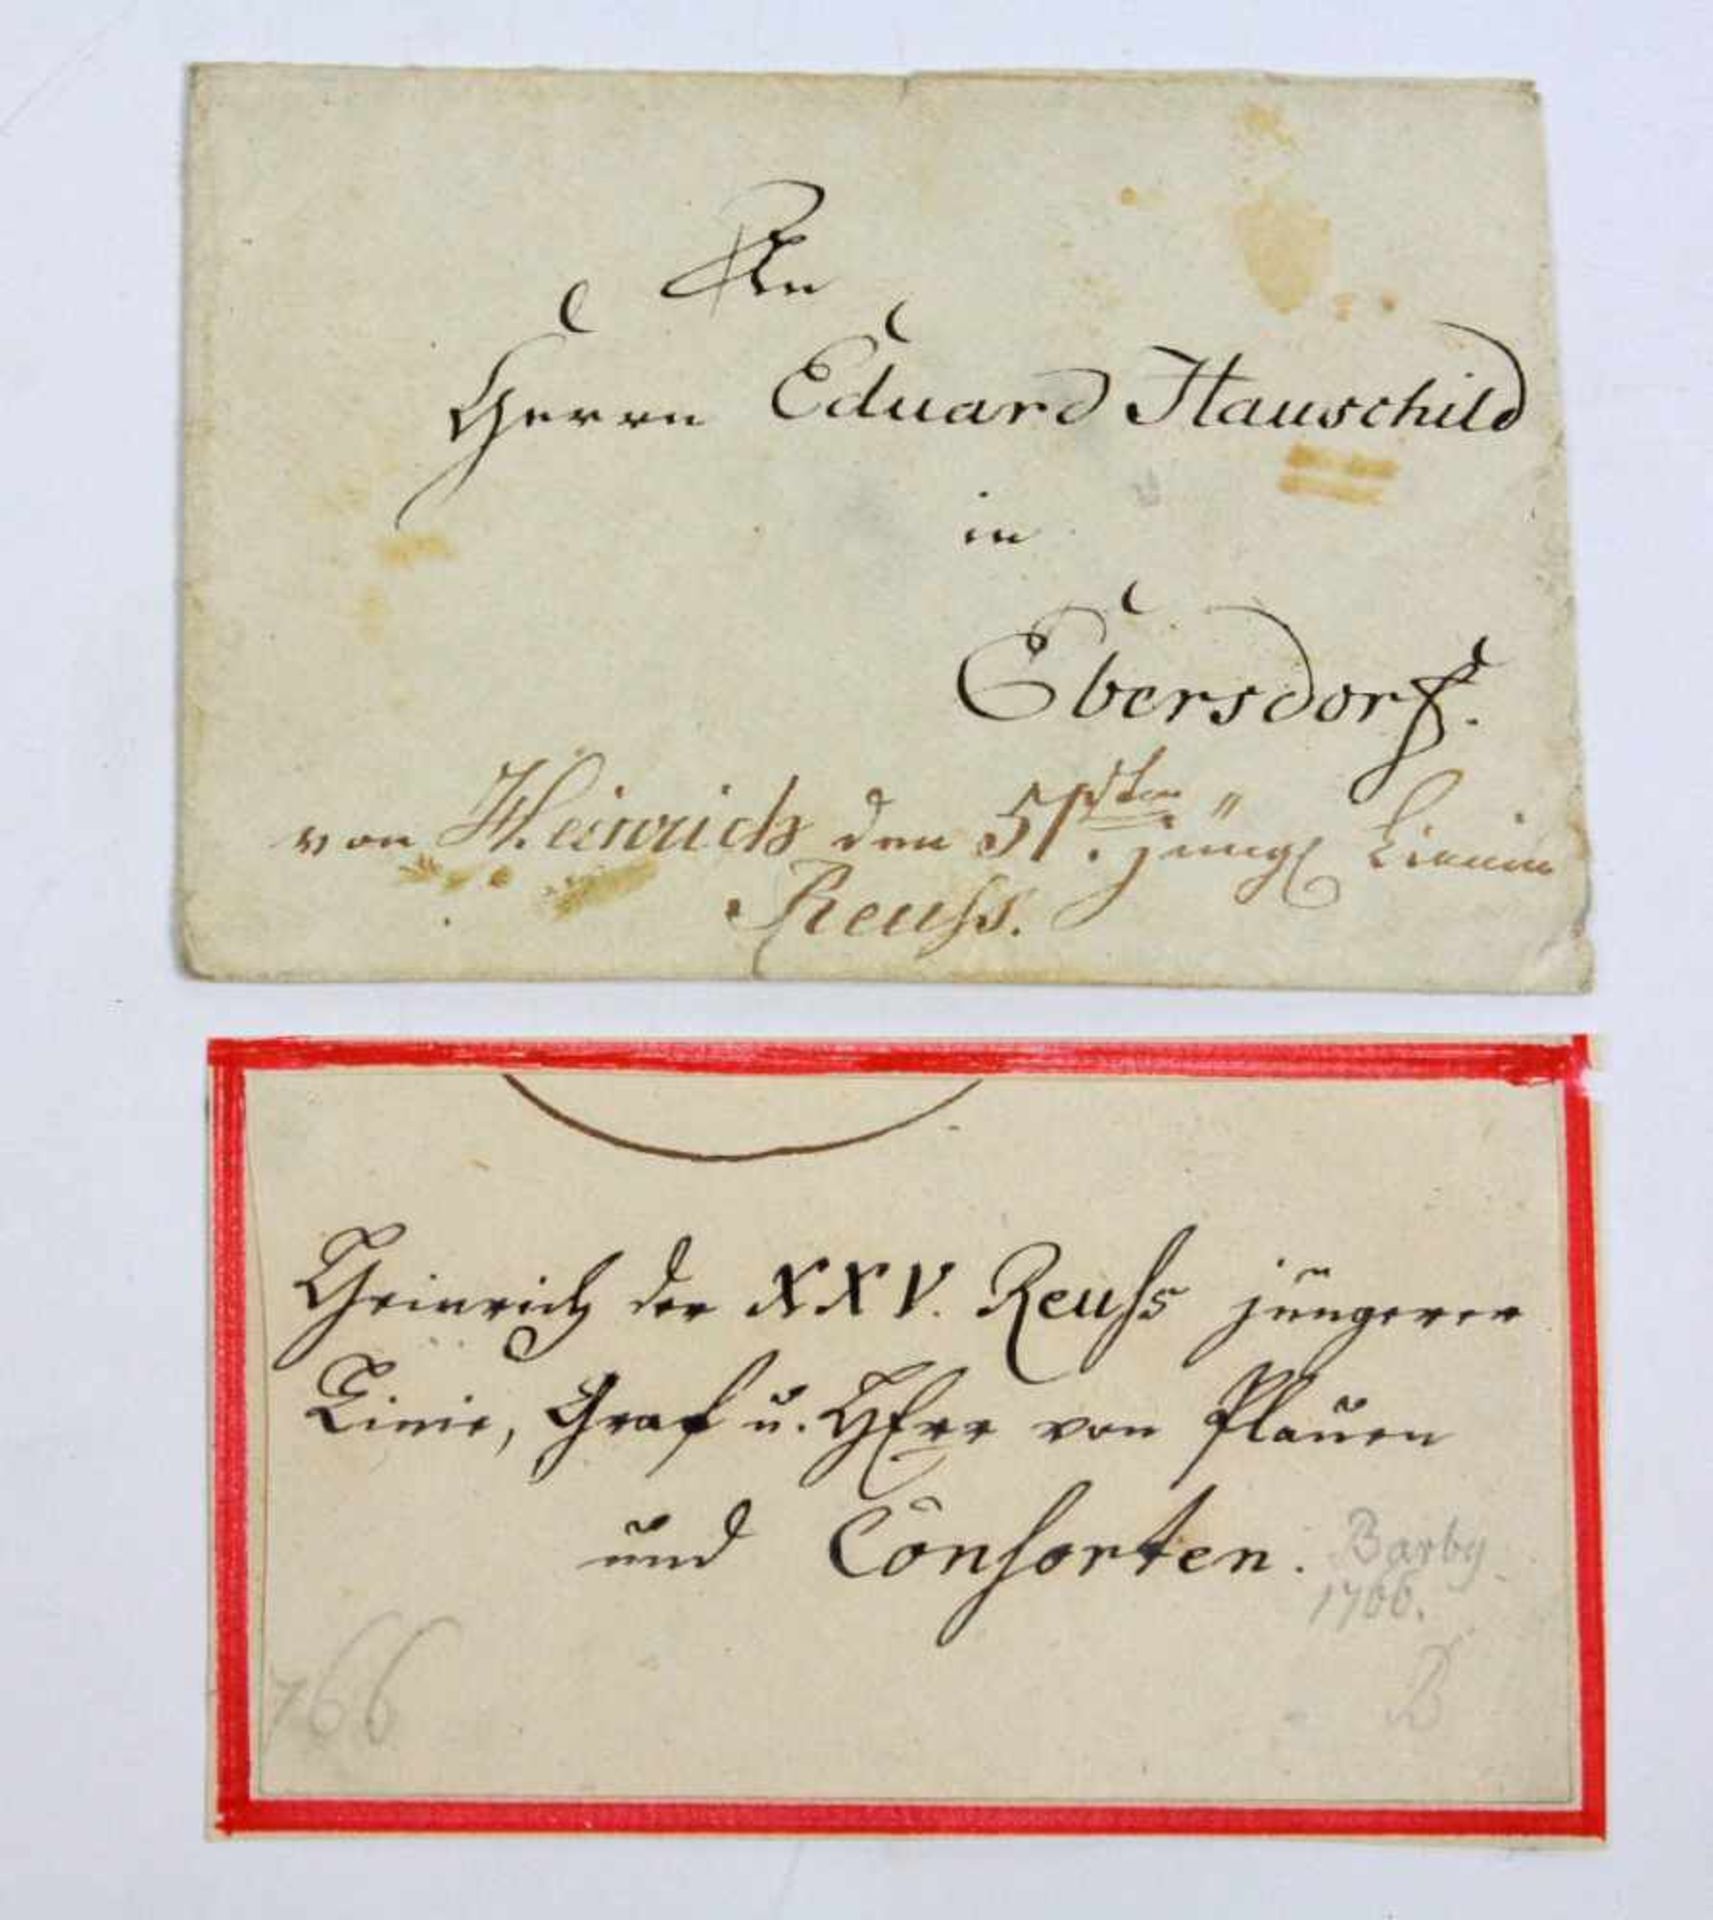 An
Herrn Eduard Hauschild
in
Ebersdorf.
von Heinrich den 51sten jüng
Reuſs.
Heinrich der XXV. Reuſs jüngerer
Linie, Graf u. HErr von Plauen
und Conſorten.
Barby
1766.
766
B